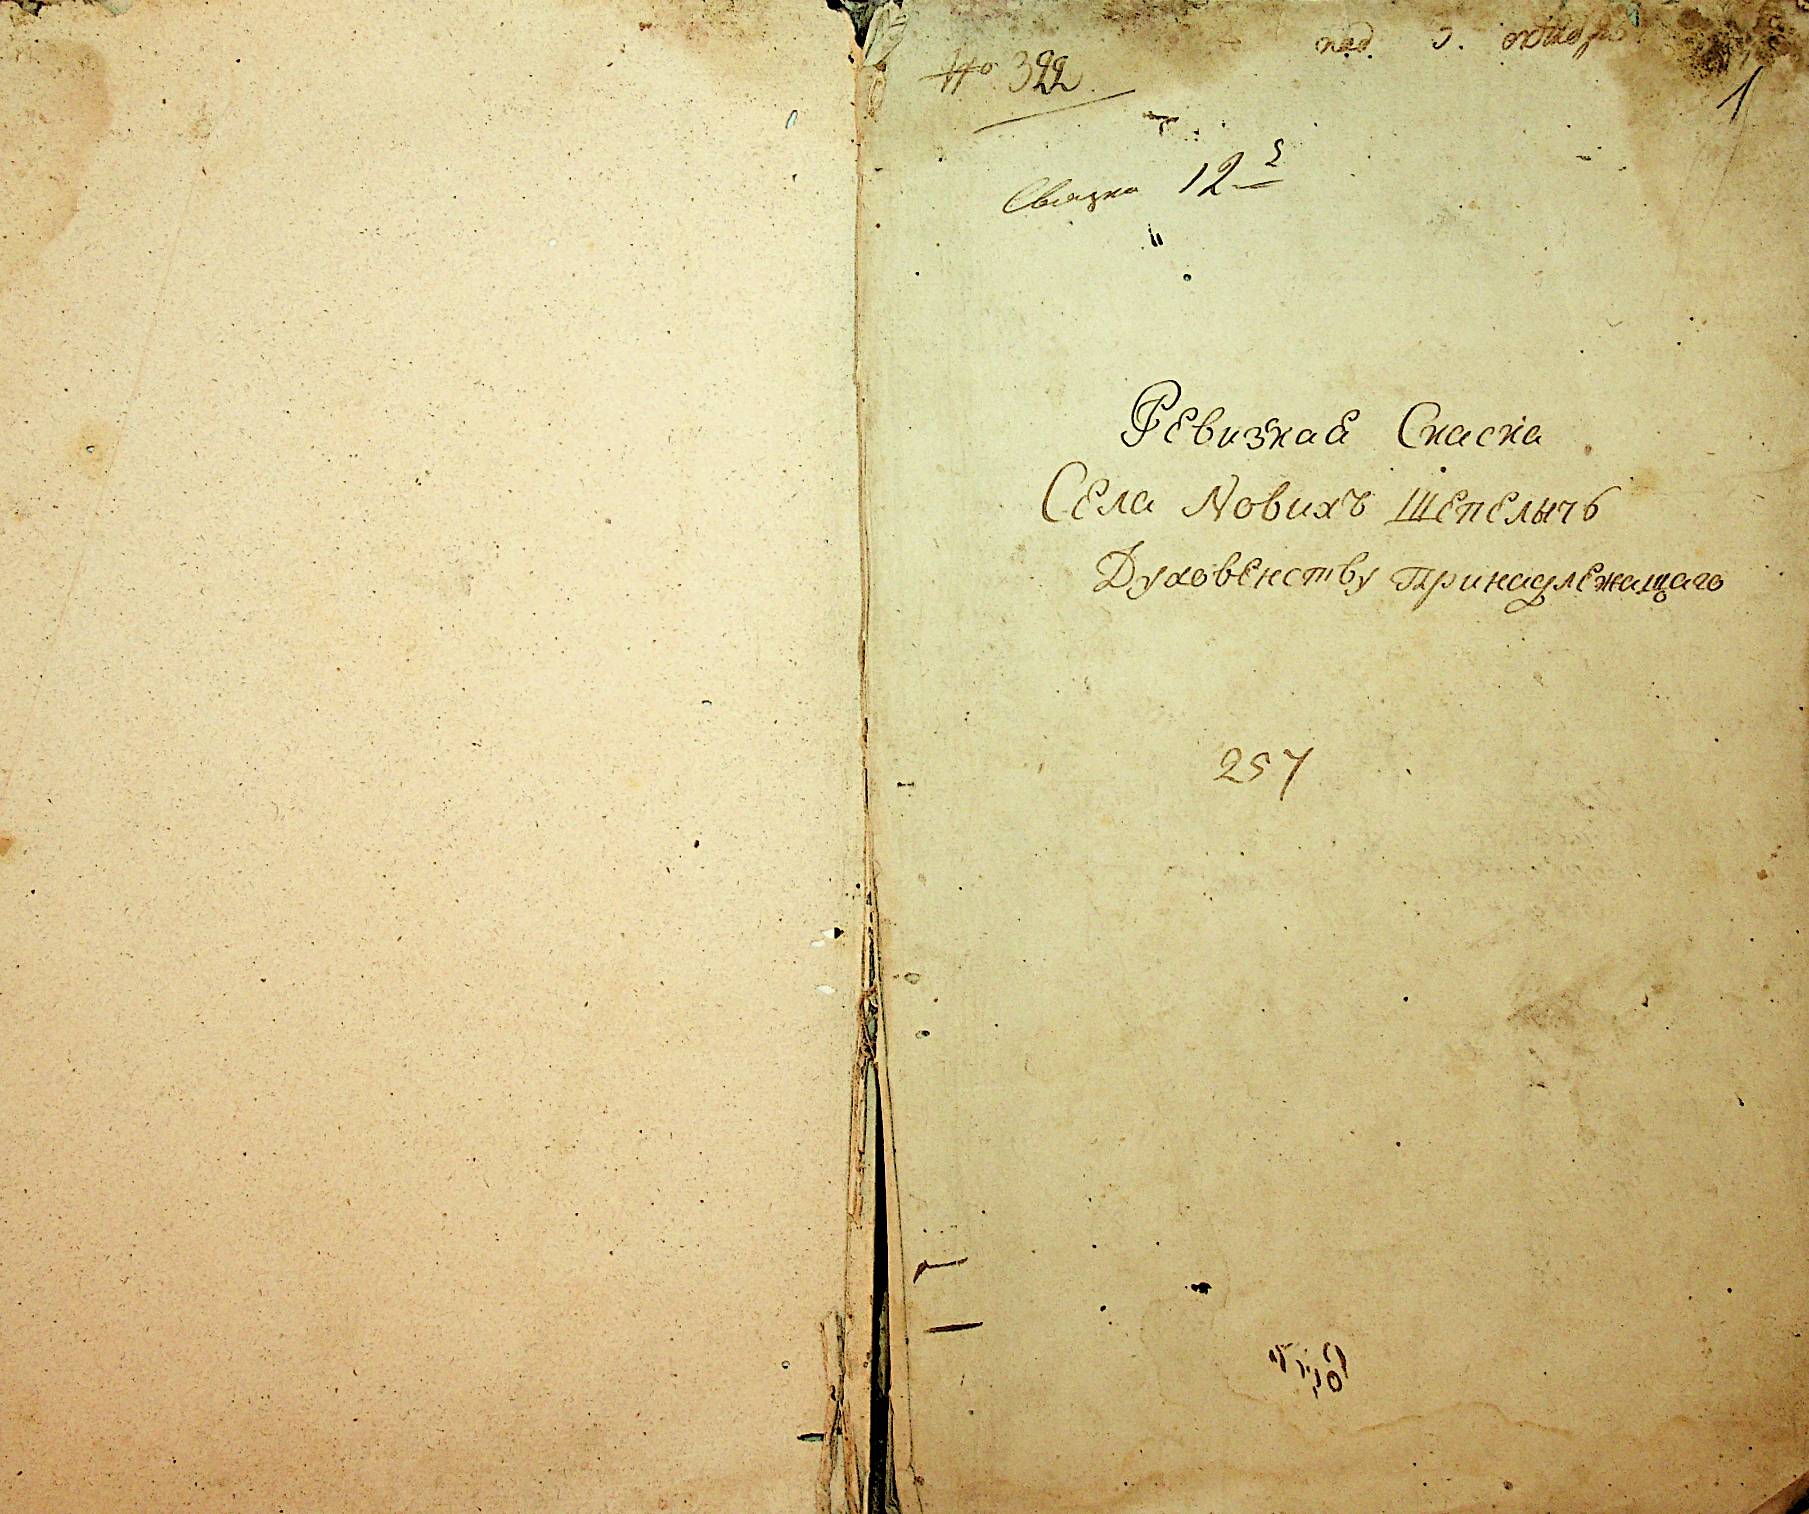 под. 5. октября
1
№ 322
Связка 12
Ревизкая Скаска
Села Новихъ Шепеличъ
Духовенству принадлежащаго
257